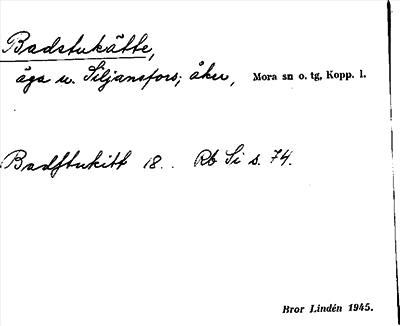 Badstukätte,
äga u. Siljansfors; åker, Mora sn o. tg, Kopp. l.
Badstukitt 18.. Rb Si s. 74.
Bror Lindén 1945.